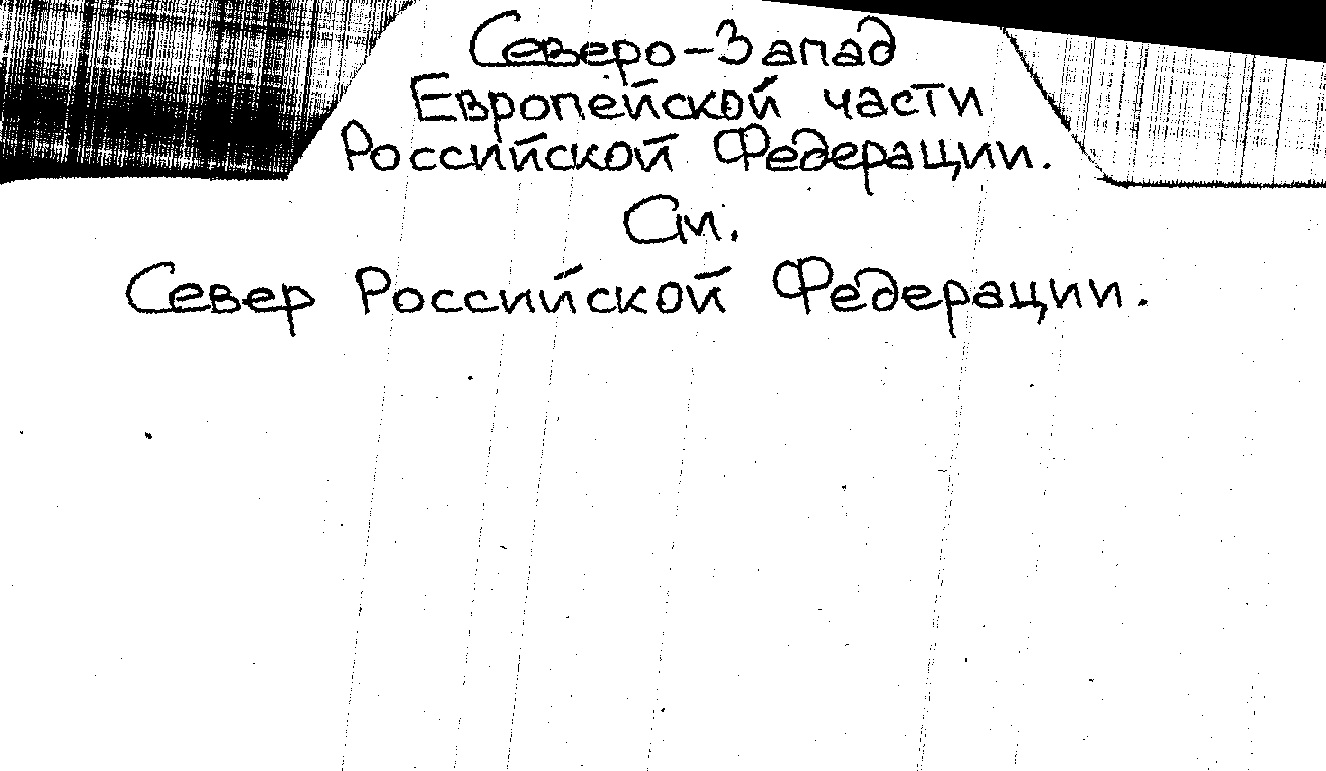 Северо-Запад
Европейской части
Российской Федерации.
См.
Север Российской Федерации.